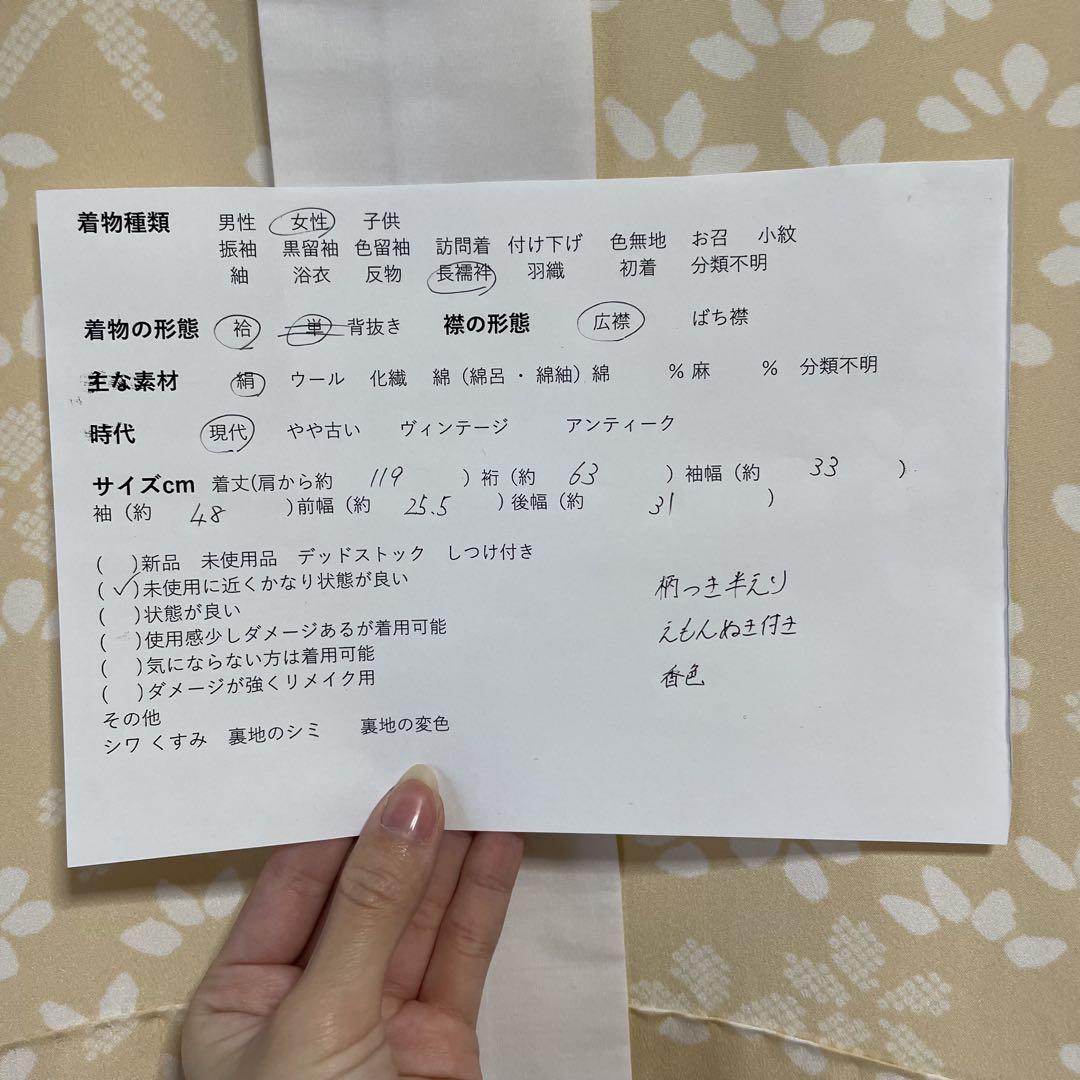 着物種類 男性 女性 子供
振袖 黒留袖 色留袖 訪問着 付け下げ 色無地 お召 小紋
紬 浴衣 反物 長襦袢 羽織 初着 分類不明
着物の形態 袷 単 背抜き 襟の形態 広襟 ばち襟
主な素材 絹 ウール 化繊 綿（綿呂・綿紬）綿 % 麻 % 分類不明
時代 現代 やや古い ヴィンテージ アンティーク
サイズcm 着丈(肩から約 119 ) 裄（約 63 ) 袖幅（約 33 )
袖（約 48 )前幅（約 25.5 ) 後幅（約 31 )
( )新品 未使用品 デッドストック しつけ付き
(✓)未使用に近くかなり状態が良い 柄つき半えり
( )状態が良い
( )使用感少しダメージあるが着用可能 えもんぬき付き
( )気にならない方は着用可能
( )ダメージが強くリメイク用 香色
その他
シワ くすみ 裏地のシミ 裏地の変色